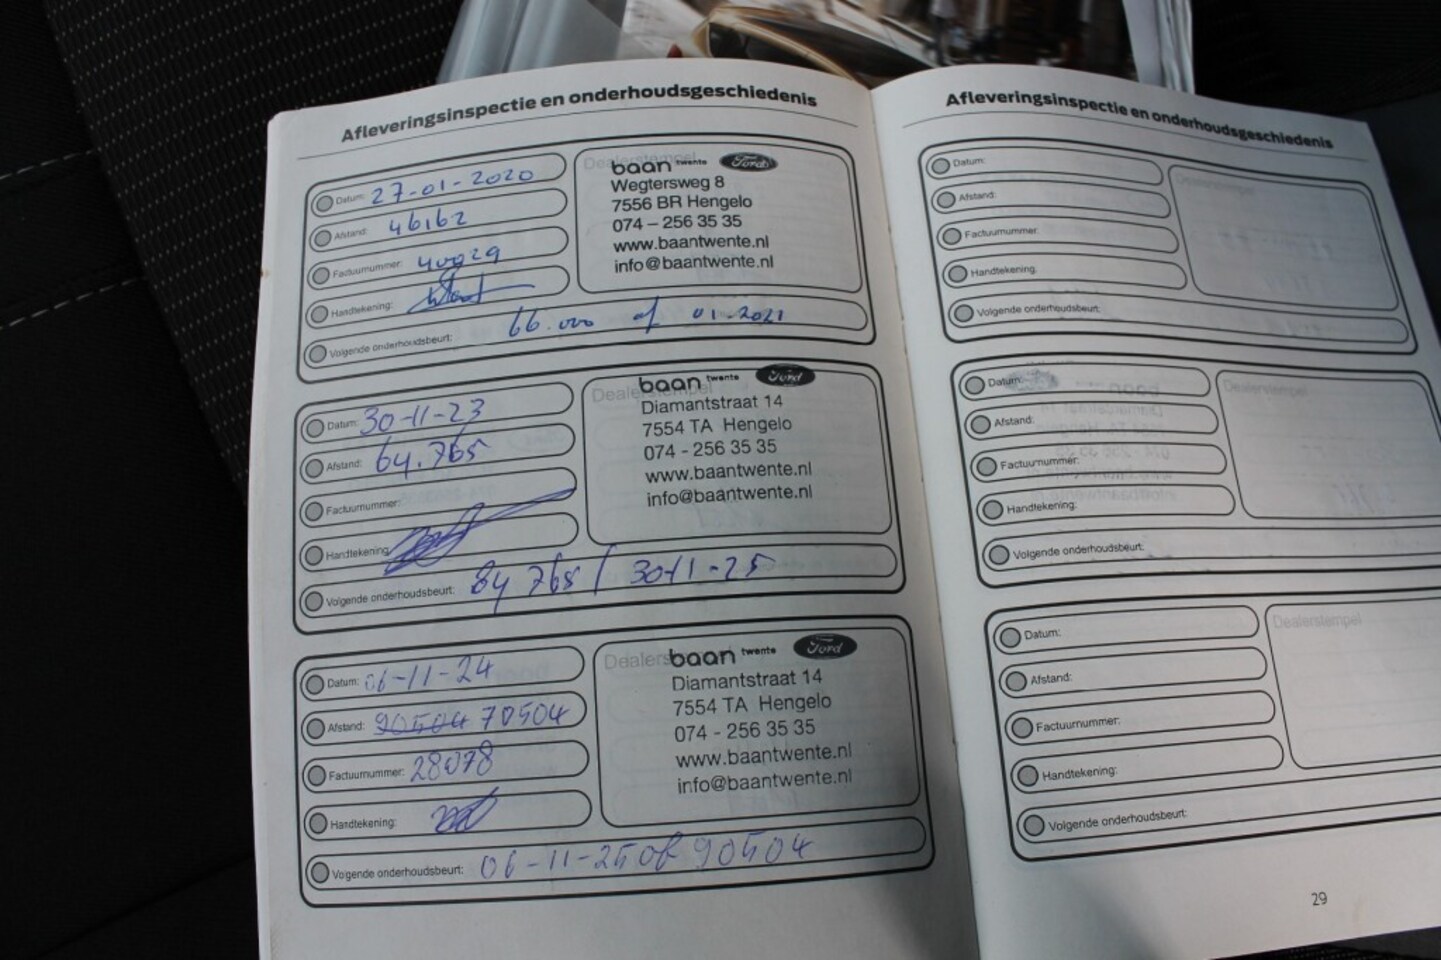 Afleveringsinspectie en onderhoudsgeschiedenis
Datum: 27-01-2020
Afstand: 46162
Factuurnummer: 40029
Handtekening:
Volgende onderhoudsbeurt: 66.000 of 01-2021
Dealerstempel
baan twente Ford
Wegtersweg 8
7556 BR Hengelo
074 – 256 35 35
www.baantwente.nl
info@baantwente.nl
Datum: 30-11-23
Afstand: 64.765
Factuurnummer:
Handtekening:
Volgende onderhoudsbeurt: 84 765 / 30-11-25
Dealerstempel
baan twente Ford
Diamantstraat 14
7554 TA Hengelo
074 - 256 35 35
www.baantwente.nl
info@baantwente.nl
Datum: 06-11-24
Afstand: 90504 70504
Factuurnummer: 28078
Handtekening:
Volgende onderhoudsbeurt: 06-11-25 of 90504
Dealerstempel
baan twente Ford
Diamantstraat 14
7554 TA Hengelo
074 - 256 35 35
www.baantwente.nl
info@baantwente.nl
Afleveringsinspectie en onderhoudsgeschiedenis
Datum:
Afstand:
Factuurnummer:
Handtekening:
Volgende onderhoudsbeurt:
Dealerstempel
Datum:
Afstand:
Factuurnummer:
Handtekening:
Volgende onderhoudsbeurt:
Dealerstempel
Datum:
Afstand:
Factuurnummer:
Handtekening:
Volgende onderhoudsbeurt:
Dealerstempel
29